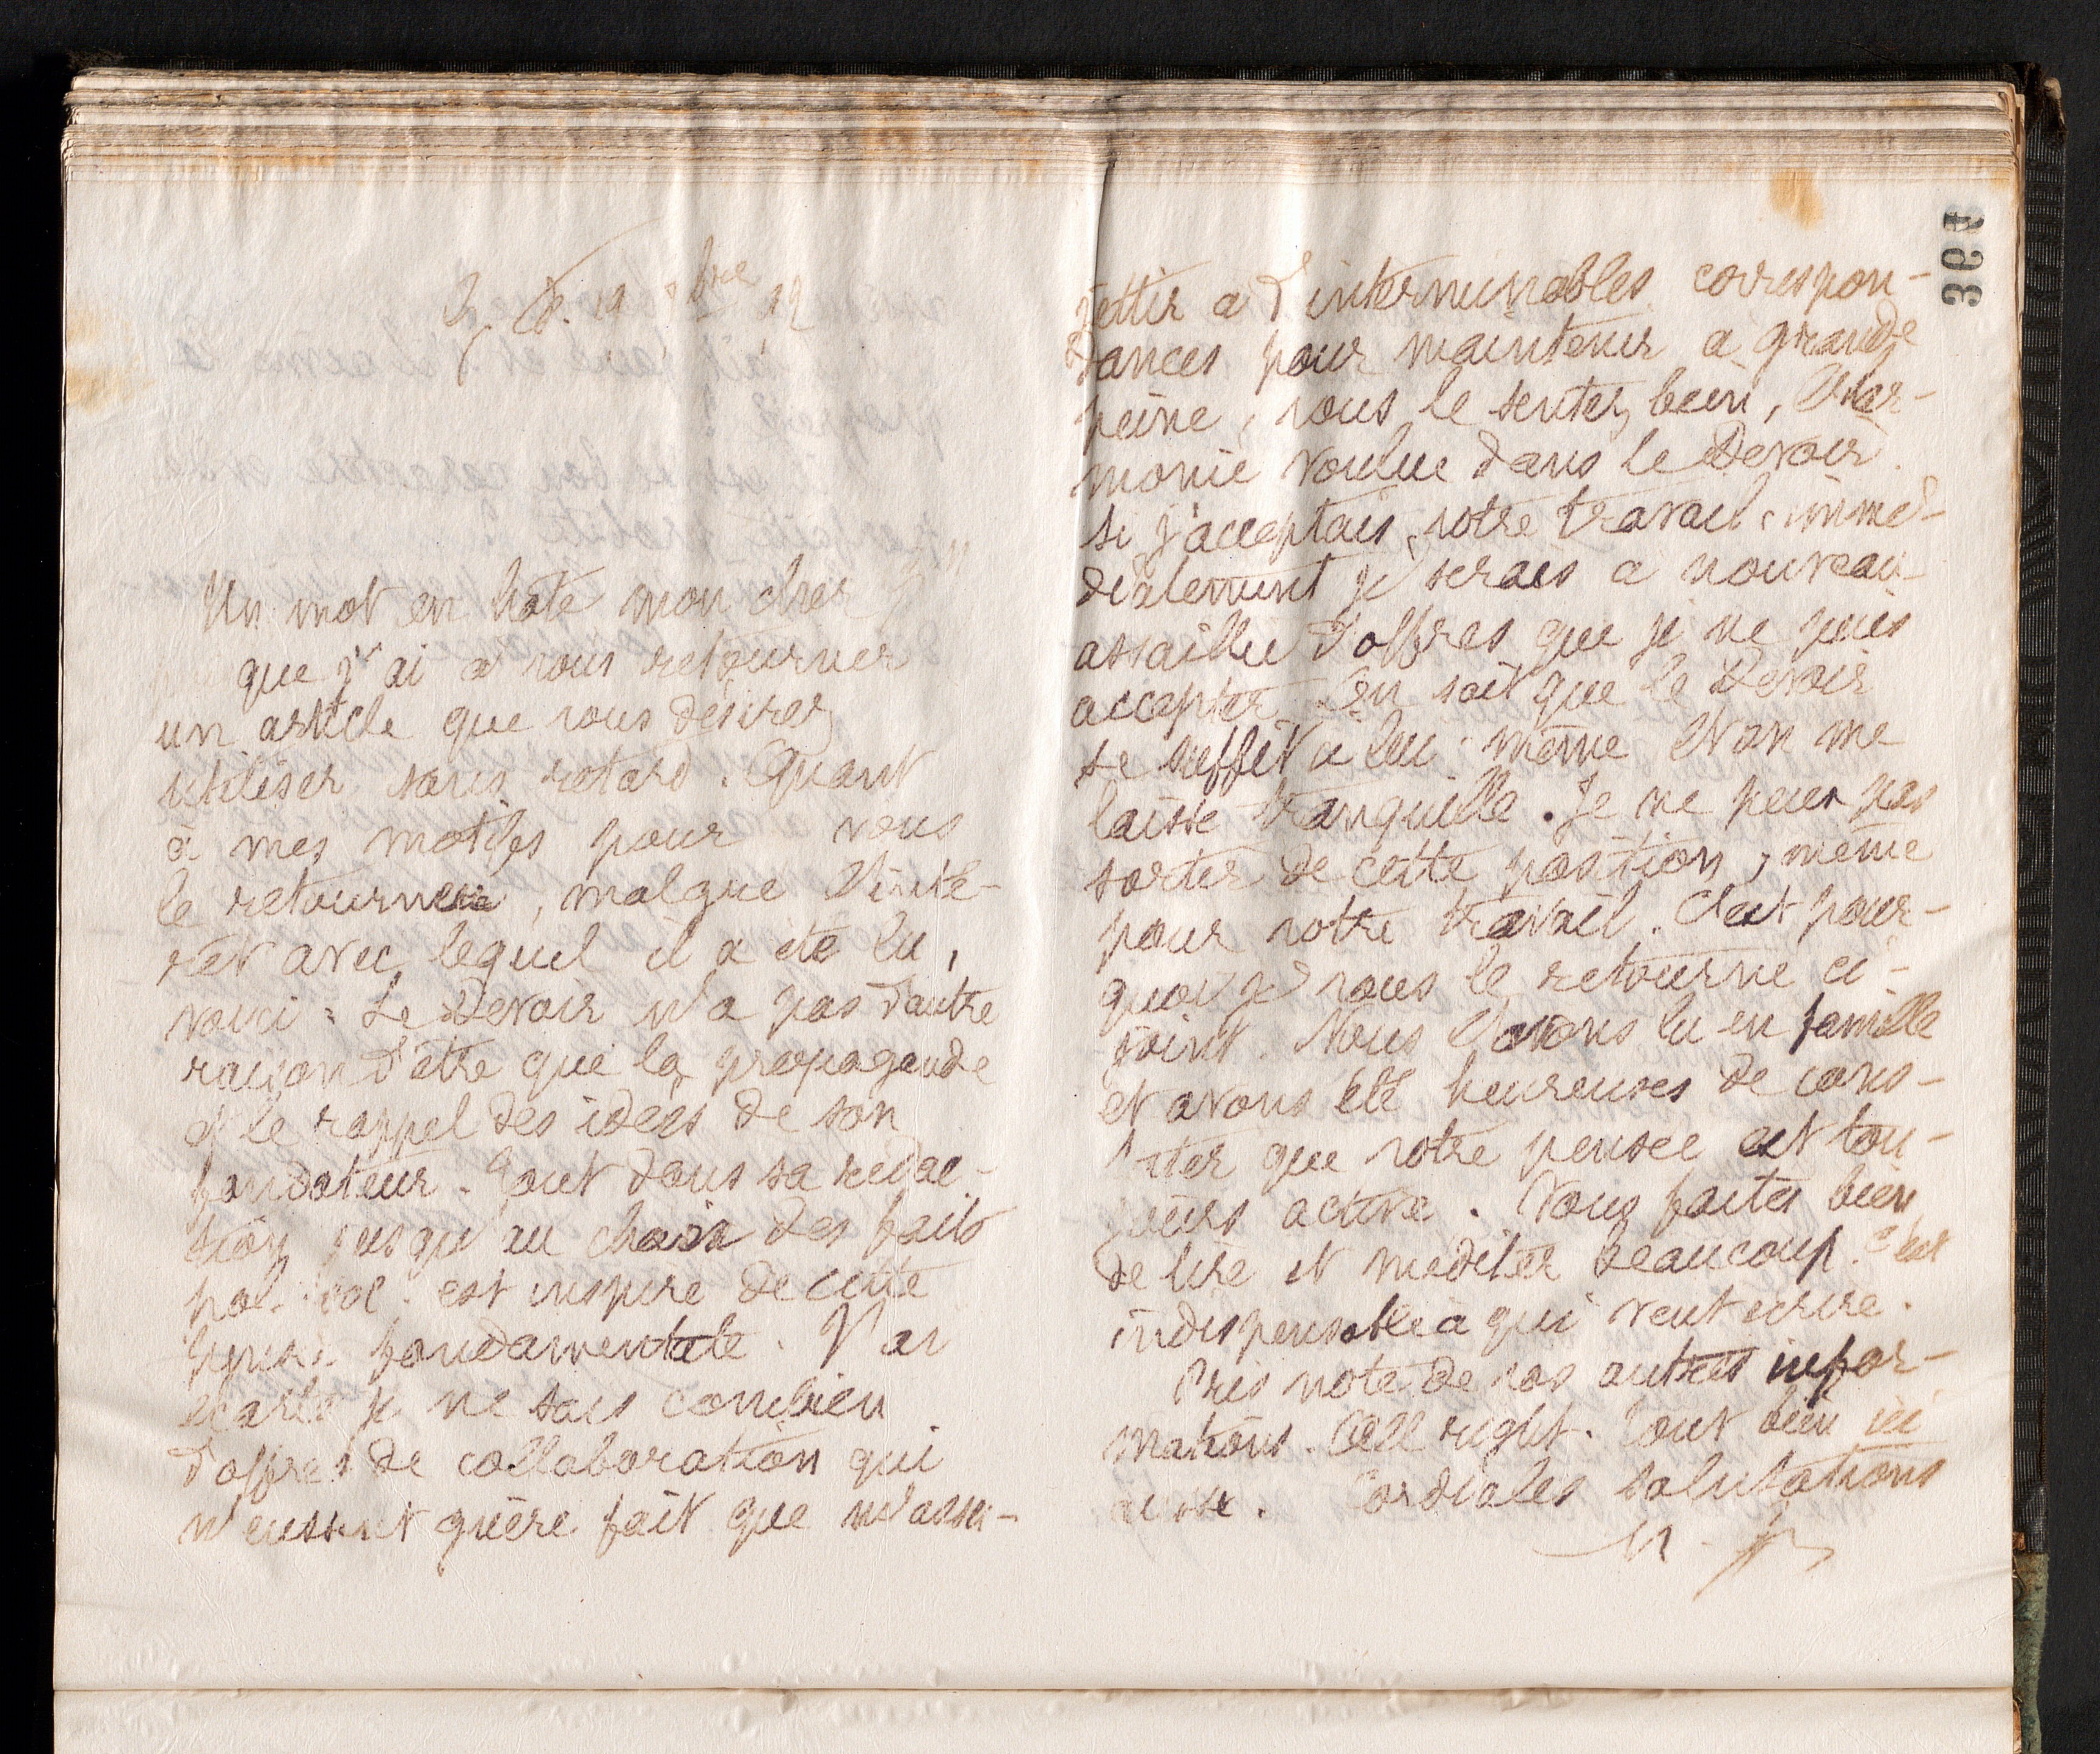 19 bre 92
Un mot en hâte mon cher
que j'ai a vous retourner
un article que vous désirez
utiliser sans retard. Quant
à mes motifs pour vous
le retourner, malgré l'inté-
rêt avec lequel il a été lu,
voici : Le Devoir n'a pas d'autre
raison d'être que la propagande
et le rappel des idées de son
fondateur. Tout dans sa rédac-
tion jusqu'au choix des faits
pol. soc. est inspiré de cette
fondamentale. J'ai
écarté je ne sais combien
d'offres de collaboration qui
n'eussent guère fait que m'assu-
jettir a d'interminables correspon-
dances pour maintenir a grande
peine, vous le sentez bien, l'har-
monie voulue dans le Devoir.
Si j'acceptais votre travail, immé-
diatement je serais a nouveau
assaillie d'offres que je ne puis
accepter. On sait que le Devoir
se suffit a lui-même et on me
laisse tranquille. Je ne peux pas
sortir de cette position, même
pour votre travail. C'est pour-
quoi je vous le retourne ci-
joint. Nous l'avons lu en famille
et avons été heureuses de cons-
tater que votre pensée est tou-
jours active. Vous faites bien
de lire et méditer beaucoup. C'est
indispensable à qui veut écrire.
Pris note de vos autres infor-
mations. All right. Tout bien ici
aussi. Cordiales salutations
M.
366